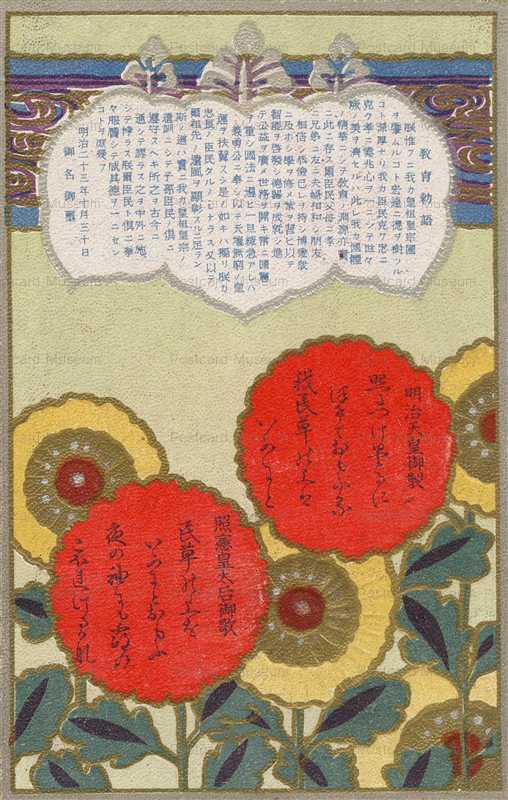 教育勅語
朕惟フニ我カ皇祖皇宗國
ヲ肇ムルコト宏遠ニ德ヲ樹ツル
コト深厚ナリ我カ臣民克ク忠ニ
克ク孝ニ億兆心ヲ一ニシテ世々
厥ノ美ヲ濟セルハ此レ我カ國體
ノ精華ニシテ教育ノ淵源亦實
ニ此ニ存ス爾臣民父母ニ孝
ニ兄弟ニ友ニ夫婦相和シ朋友
相信シ恭儉己レヲ持シ博愛衆
ニ及ホシ學ヲ修メ業ヲ習ヒ以テ
智能ヲ啓發シ德器ヲ成就シ進
テ公益ヲ廣メ世務ヲ開キ常ニ國憲
ヲ重シ國法ニ遵ヒ一旦緩急アレハ
義勇公ニ奉シ以テ天壤無窮ノ皇
運ヲ扶翼スヘシ是ノ如キハ獨リ朕カ
忠良ノ臣民タルノミナラス又以テ
爾祖先ノ遺風ヲ顯彰スルニ足ラン
斯ノ道ハ實ニ我カ皇祖皇宗ノ
遺訓ニシテ子孫臣民ノ俱ニ
遵守スヘキ所之ヲ古今ニ
通シテ謬ラス之ヲ中外ニ施
シテ悖ラス朕爾臣民ト俱ニ拳
々服膺シテ咸其德ヲ一ニセン
コトヲ庶幾フ
明治二十三年十月三十日
御名御璽
明治天皇御製
つけておもふかな
我民草の上は
いかにと
照憲皇太后御歌
民草の上を
いかにとおもふ
夜の袖にも露の
Postcard Museum